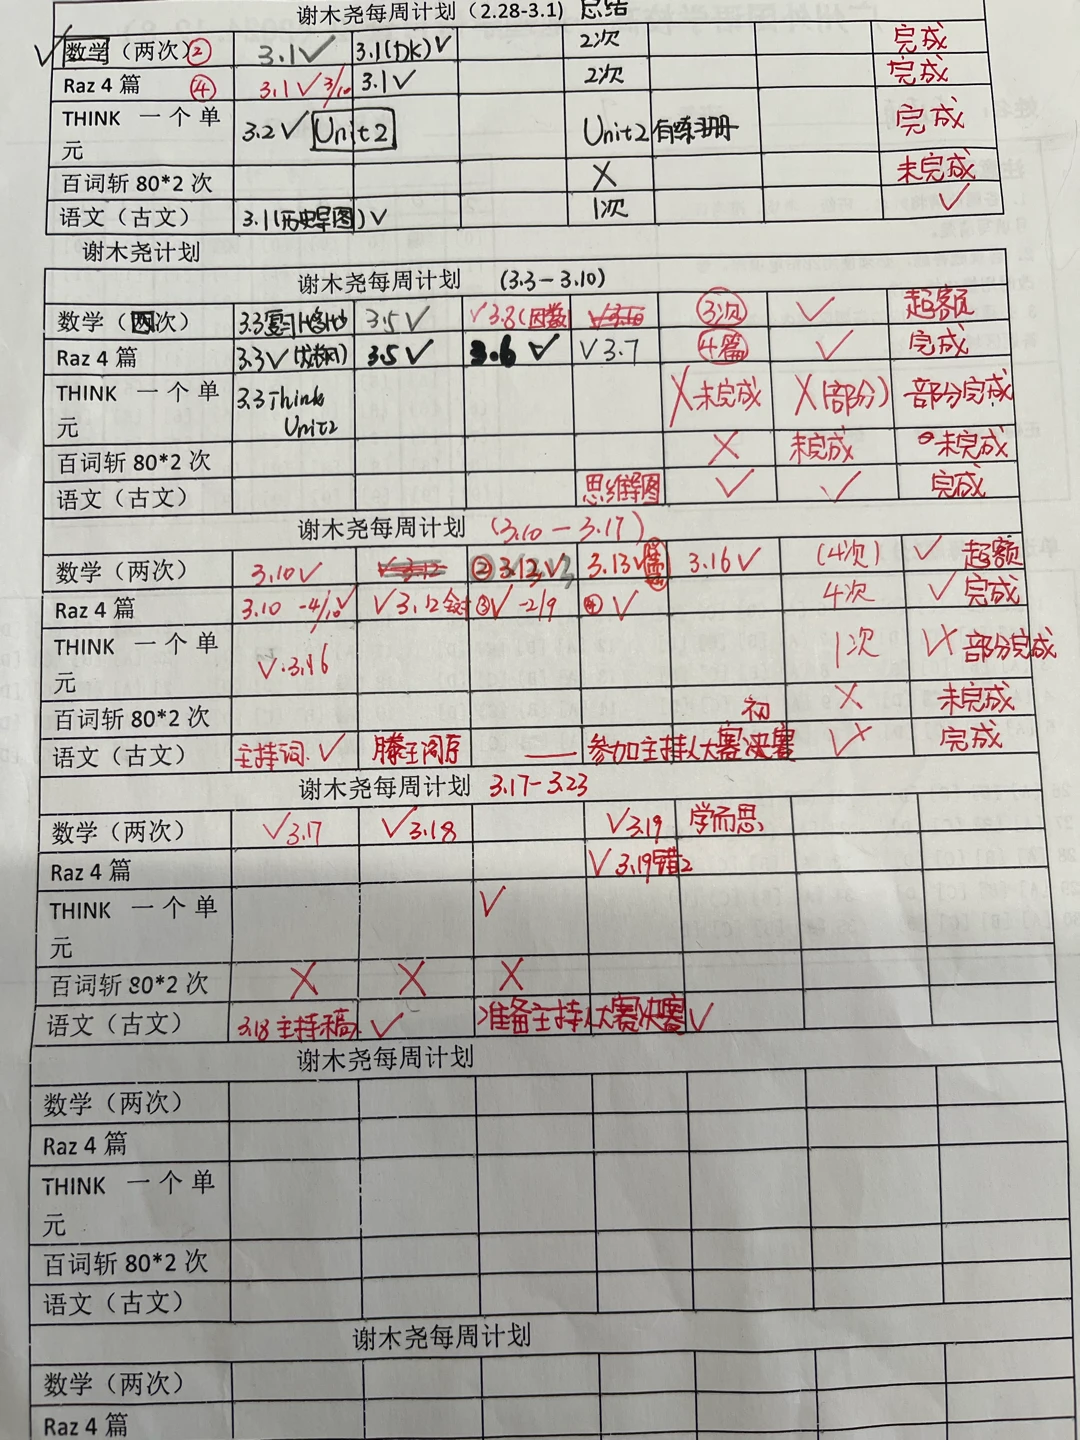 谢木尧每周计划（2.28-3.1) 总结
✓ 数学（两次）② 3.1✓ 3.1(DK)✓ 2次 完成
Raz 4 篇 ④ 3.1✓ 3/10 3.1✓ 2次 完成
THINK 一个单元 3.2✓ Unit2 Unit2 有练习册 完成
百词斩 80*2 次 X 未完成
语文（古文） 3.1(历史导图)✓ 1次 ✓
谢木尧计划
谢木尧每周计划 (3.3－3.10)
数学（两次） 3.3复习 3.5✓ ✓3.8(因数) 3次 ✓ 超额
Raz 4 篇 3.3✓ 3.5✓ 3.6✓ ✓3.7 4篇 ✓ 完成
THINK 一个单元 3.3Think Unit2 X未完成 X(部分) 部分完成
百词斩 80*2 次 X 未完成 未完成
语文（古文） 思维导图 ✓ ✓ 完成
谢木尧每周计划 (3.10－3.17)
数学（两次） 3.10✓ ②3.12✓ 3.13✓ 3.16✓ (4次) ✓ 超额
Raz 4 篇 3.10 -4/10✓ ✓3.12全对 ③✓-2/9 ④✓ 4次 ✓完成
THINK 一个单元 ✓.3.16 1次 部分完成
百词斩 80*2 次 X 未完成
语文（古文） 主持词✓ 滕王阁序 — 参加主持人大赛初决赛 完成
谢木尧每周计划 3.17-3.23
数学（两次） ✓3.17 ✓3.18 ✓3.19 学而思
Raz 4 篇 ✓3.19错2
THINK 一个单元 ✓
百词斩 80*2 次 X X X
语文（古文） 3.18主持稿 ✓ 准备主持人大赛决赛✓
谢木尧每周计划
数学（两次）
Raz 4 篇
THINK 一个单元
百词斩 80*2 次
语文（古文）
谢木尧每周计划
数学（两次）
Raz 4 篇